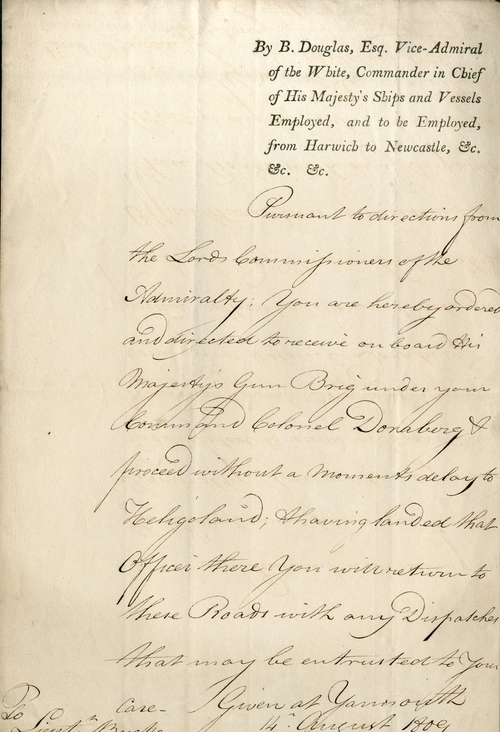 By B. Douglas, Esq. Vice-Admiral
of the White, Commander in Chief
of His Majesty's Ships and Vessels
Employed, and to be Employed,
from Harwich to Newcastle, &c.
&c. &c.
Pursuant to directions from
the Lords Commissioners of the
Admiralty; You are hereby ordered
and directed to receive on board His
Majesty's Gun Brig under your
Command Colonel Dornberg &
proceed without a moments delay to
Heligoland; & having landed that
Officer there You will return to
these Roads with any Dispatches
that may be entrusted to Your
Care- Given at Yarmouth
14th August 1809
To
Lieutt